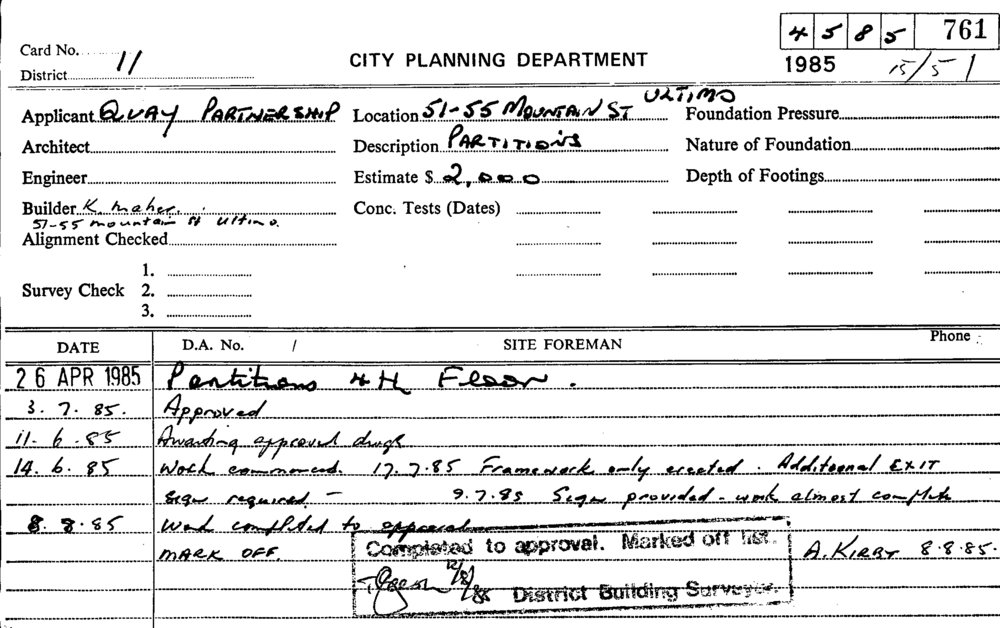 4 5 8 5 761
Card No. 11
CITY PLANNING DEPARTMENT
1985 15/5/
District
Applicant QUAY PARTNERSHIP Location 51-55 MOUNTAIN ST ULTIMO Foundation Pressure
Architect Description PARTITIONS Nature of Foundation
Engineer Estimate $ 2,000 Depth of Footings
Builder K. Maher. Conc. Tests (Dates)
51-55 mountain St Ultimo.
Alignment Checked
1.
Survey Check 2.
3.
DATE D.A. No. / SITE FOREMAN Phone
26 APR 1985 Partitions 4th Floor.
3. 7. 85. Approved
11. 6. 85 Awaiting approved dwgs
14. 6. 85 Work commenced. 17.7.85 Framework only erected. Additional EXIT
sign required - 9.7.85 Sign provided - work almost complete
8. 8. 85 Work completed to approval
MARK OFF. Completed to approval. Marked off list. A. KIRBY 8.8.85.
12/8/85 District Building Surveyor.